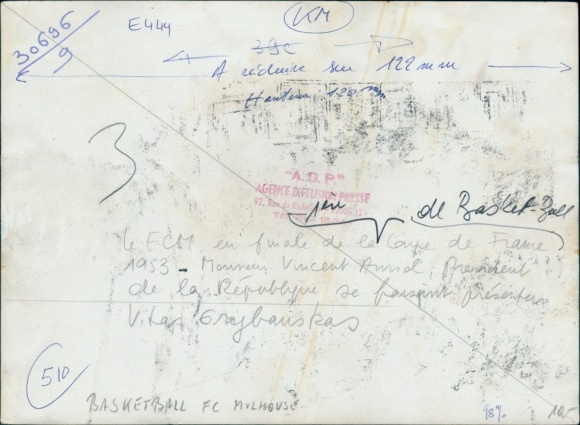 E444
KM
30696
9
39c
A réduire sur 122 mm
Hauteur 120 mm
3
"A.D.P"
AGENCE DIFFUSION PRESSE
de Basket-Ball
le FCM en finale de la Coupe de France
1953 - Monsieur Vincent Auriol, Président
de la République se faisant présenter
Vitas Grzybauskas
510
BASKETBALL FC MULHOUSE
10,-